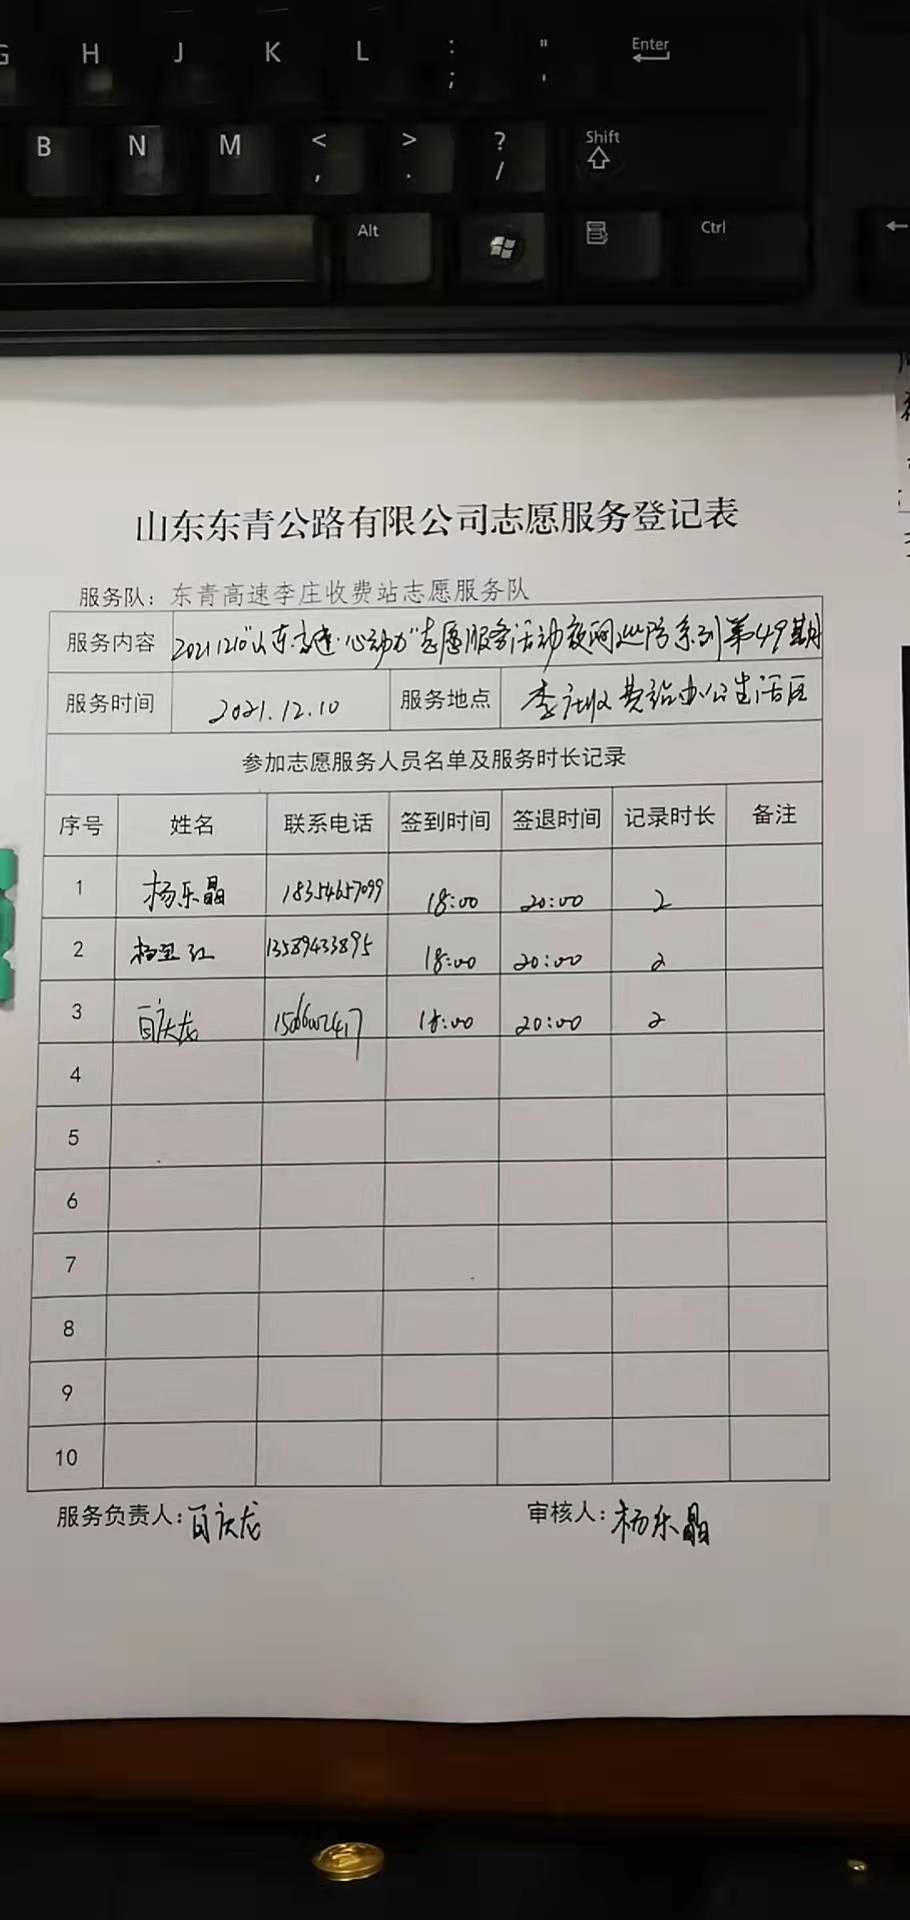 G H J K L : ; " ' Enter
B N M < , > . ? / Shift
Alt Ctrl
山东东青公路有限公司志愿服务登记表
服务队：东青高速李庄收费站志愿服务队
服务内容 20211210"山东高速·心动力"志愿服务活动夜间巡防系列第49期
服务时间 2021.12.10 服务地点 李庄收费站办公生活区
参加志愿服务人员名单及服务时长记录
序号 姓名 联系电话 签到时间 签退时间 记录时长 备注
1 杨乐晶 18354657099 18:00 20:00 2
2 13589433895 18:00 20:00 2
3 庆龙 18:00 20:00 2
4
5
6
7
8
9
10
服务负责人：庆龙 审核人：杨乐晶